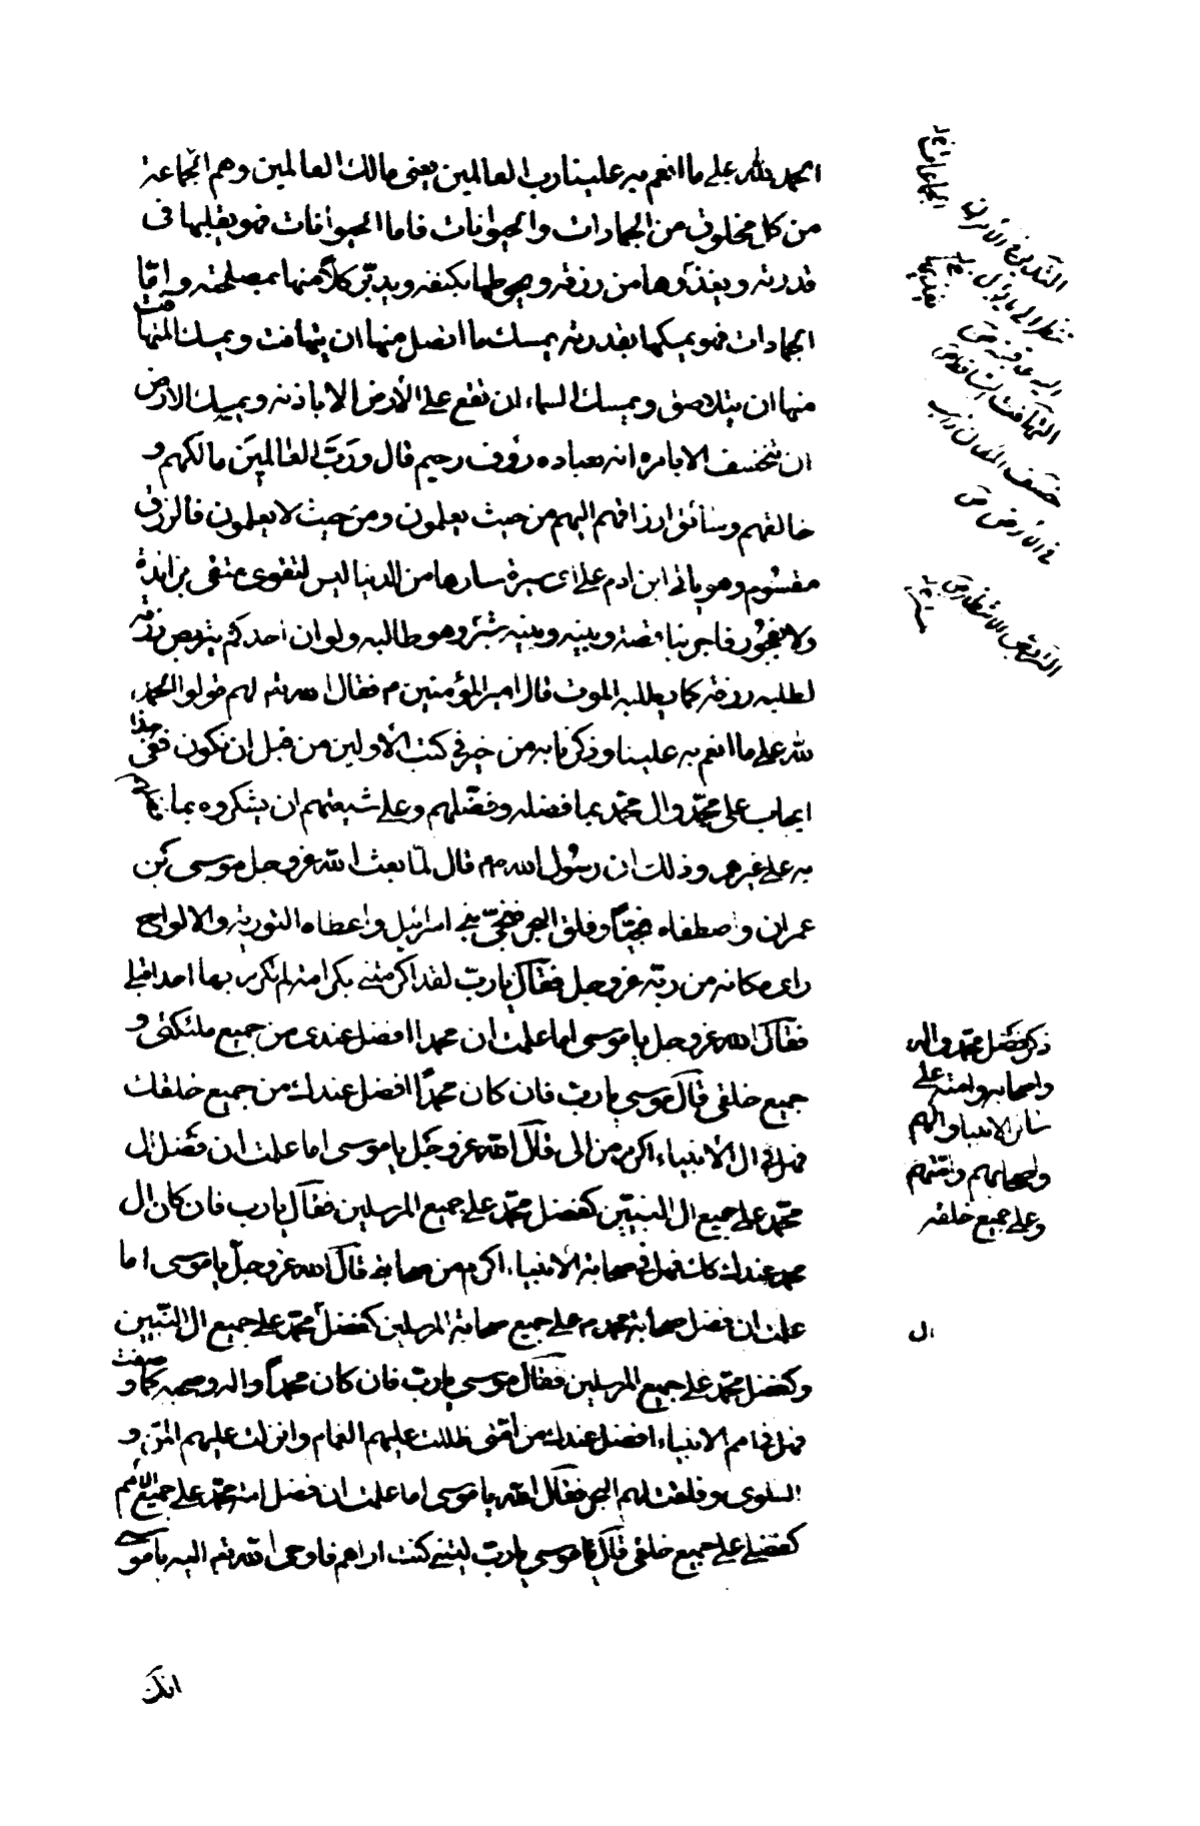 الحمد لله على ما انعم به علينا رب العالمين يعنى مالك العالمين وهم الجماعة
من كل مخلوق من الجمادات والحيوانات فاما الحيوانات فهو يقلبها فى
قدرته ويغذوها من رزقه ويحوطها بكنفه ويدبّر كلاً منها بمصلحته وامّا
الجمادات فهو يمسكها بقدرته يمسك ما اتصل منها ان يتهافت ويمسك المتهافت
منها ان يتلاصق ويمسك السماء ان تقع على الأرض الا باذنه ويمسك الارض
ان تنخسف الا بامره انه بعباده رؤف رحيم قال وربّ العالمين مالكهم و
خالقهم وسائق ارزاقهم اليهم من حيث يعلمون ومن حيث لا يعلمون فالرزق
مقسوم وهو ياتى ابن ادم على اى سيرة سارها من الدنيا ليس لتقوى متقى بزائدة
ولا لفجور فاجر بناقصة وبينه وبينه ستر وهو طالبه ولو ان احدكم يتربص رزقه
لطلبه رزقه كما يطلبه الموت قال امير المؤمنين م فقال الله تم لهم قولوا الحمد
لله على ما انعم به علينا وذكرنا به من خير فى كتب الأولين من قبل ان نكون ففى هذا
ايجاب على محمّد وال محمّد بما فضله وفضّلهم وعلى شيعتهم ان يشكروه بما فضلهم
به على غيرهم وذلك ان رسول الله صم قال لمّا بعث الله عز وجل موسى بن
عمران واصطفاه نجيّاً وفلق البحر فنجّى بنى اسرائيل واعطاه التورية والالواح
راى مكانه من ربّه عز وجل فقال يا ربّ لقد اكرمتنى بكرامة لم تكرم بها احدا قبلى
فقال الله عز وجل يا موسى اما علمت ان محمدا افضل عندى من جميع ملئكتى و
جميع خلقى قال موسى يا ربّ فان كان محمداً افضل عندك من جميع خلقك
فهل فى ال الأنبياء اكرم من الى قال الله عز وجل يا موسى اما علمت ان فضل ال
محمّد على جميع ال النبيّين كفضل محمّد على جميع المرسلين فقال يا رب فان كان ال
محمد عندك كك فهل فى صحابة الأنبياء اكرم من صحابتى قال الله عز وجلّ يا موسى اما
علمت ان فضل صحابة محمد م على جميع صحابة المرسلين كفضل محمّد على جميع ال النبّيين
وكفضل محمّد على جميع المرسلين فقال موسى يا ربّ فان كان محمداً واله وصحبه كما وصفت
فهل فى امم الانبياء افضل عندك من امّتى ظللت عليهم الغمام وانزلت عليهم المنّ و
السلوى وفلقت لهم البحر فقال الله يا موسى اما علمت ان فضل امة محمّد على جميع الامم
كفضلى على جميع خلقى قال يا موسى يا ربّ ليتنى كنت اراهم فاوحى الله تم اليه يا موسى
انك
التدبير فى الامر ان
تنظر الى ما يؤل
اليه عاقبته ص
التهافت التساقط ص
خسف المكان ذهب
فى الارض ص
التربص الانتظار ص
ذكر فضل محمّد واله
واصحابه وامته على
سائر الانبياء والهم
واصحابهم وامتهم
وعلى جميع خلقه
ال